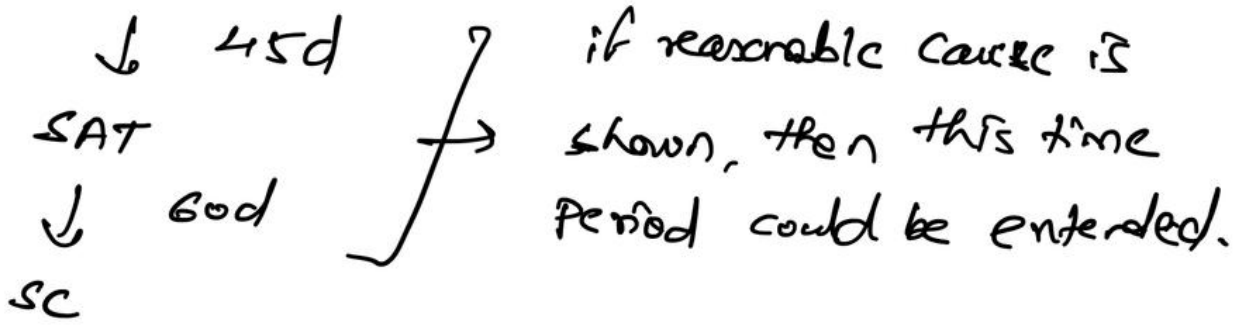 ↓ 45d
SAT
↓ 60d
SC
→ if reasonable cause is
shown, then this time
period could be extended.